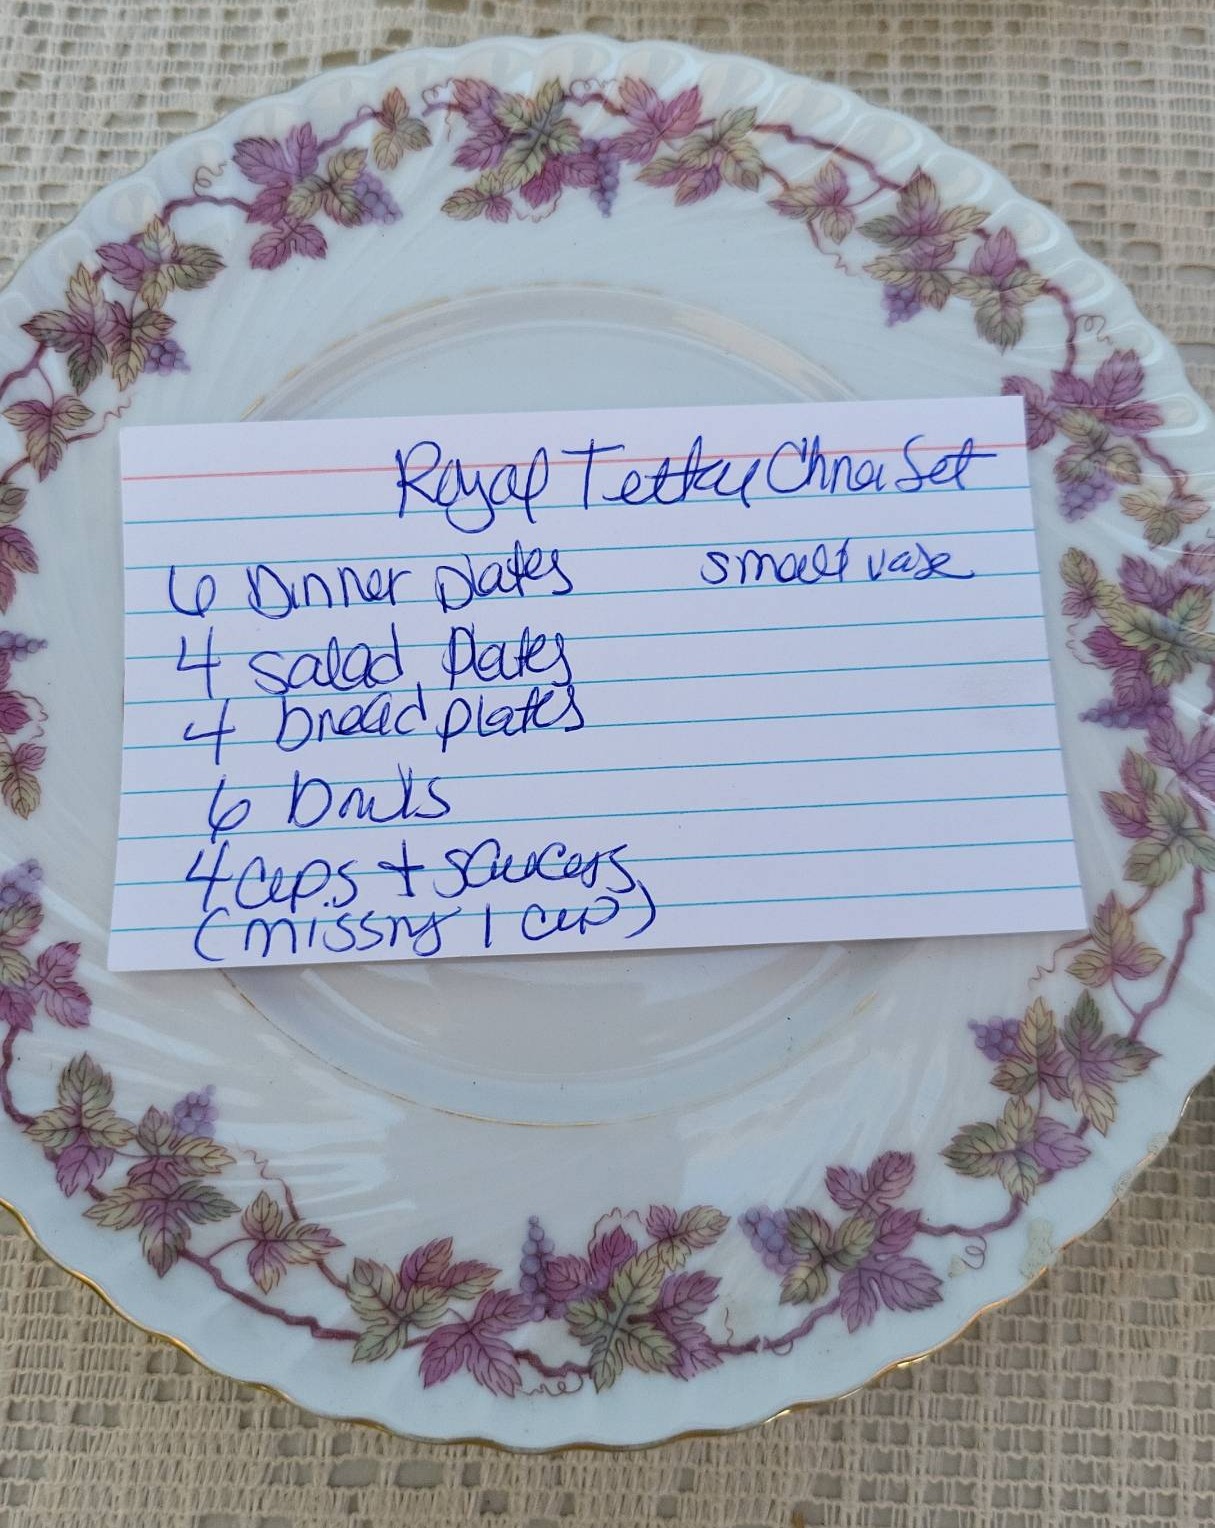 Royal Tettau China Set
6 Dinner plates small vase
4 salad plates
4 bread plates
6 Bowls
4 cups + saucers
(missing 1 cup)